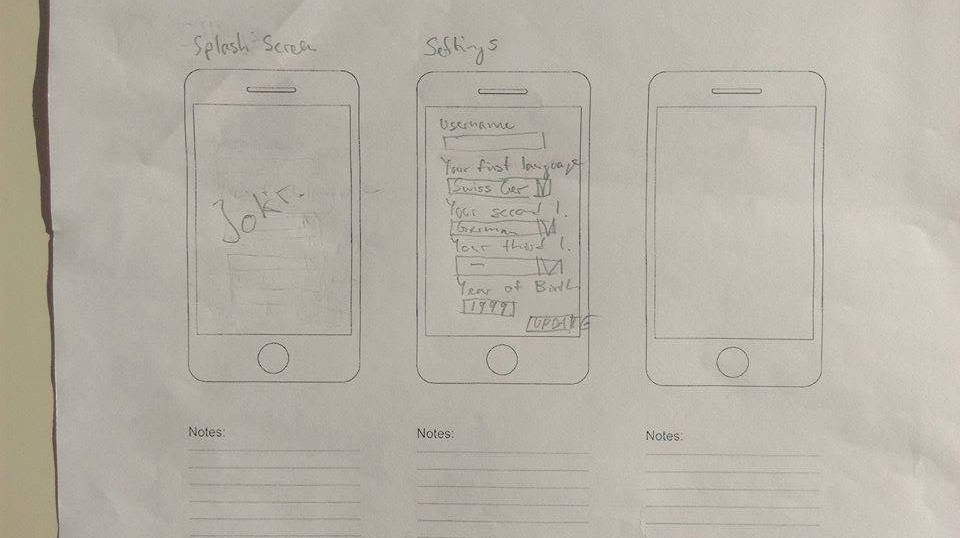 Splash Screen
Jokr.
Notes:
Settings
Username
Your first language
Swiss Ger
Your second l.
German
Your third l.
-
Year of Birth
1999
UPDATE
Notes:
Notes: